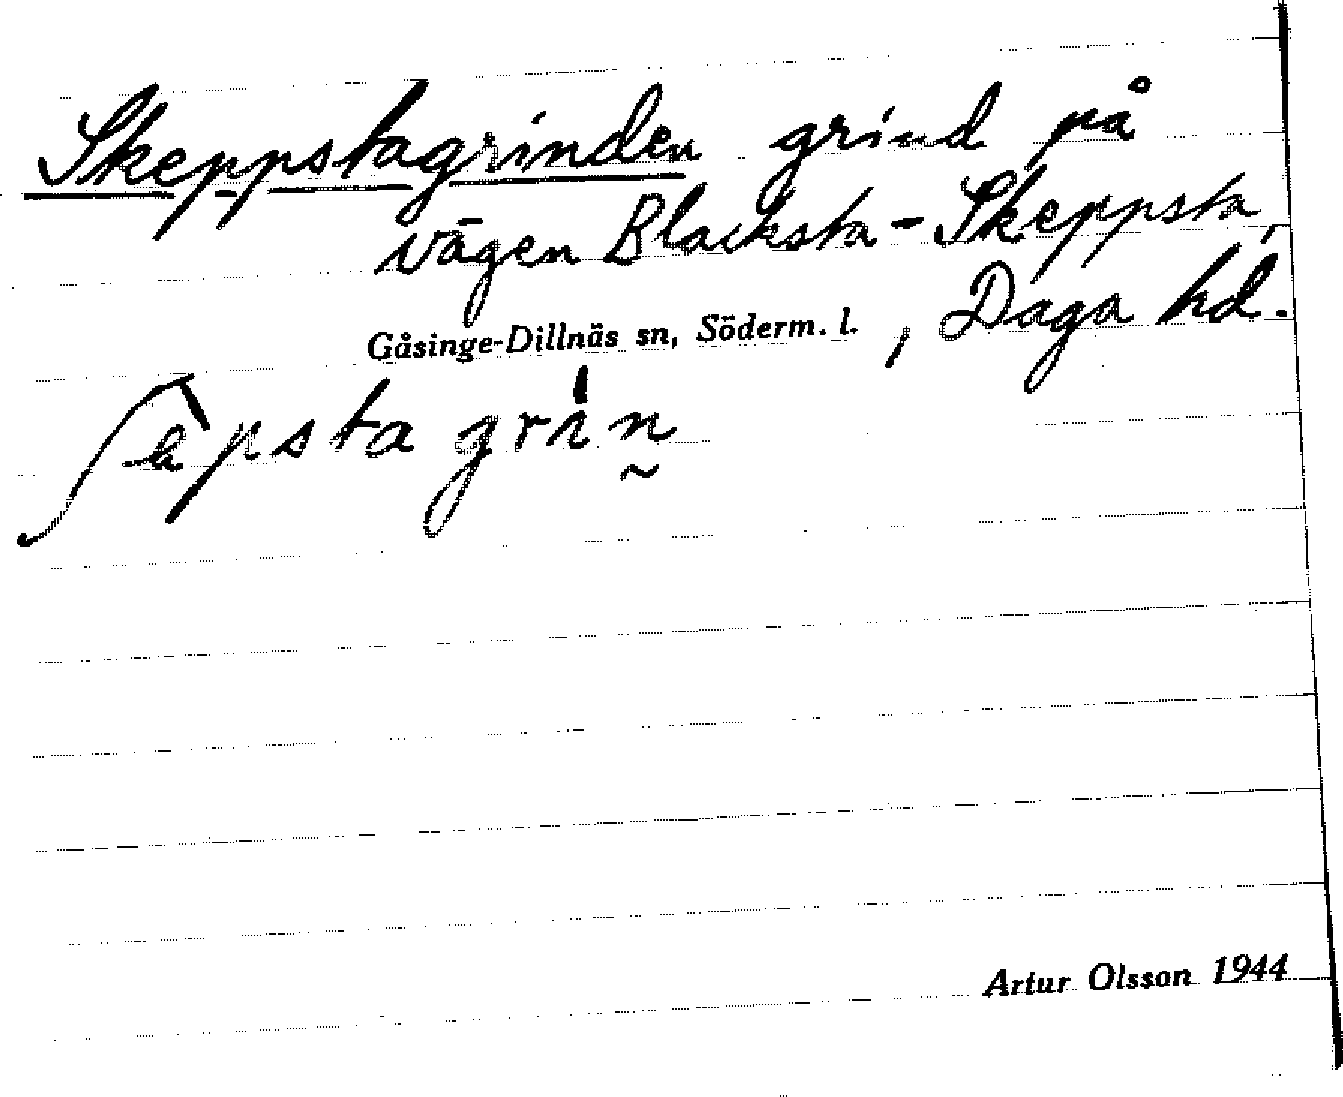 Skeppstagrinden grind på
vägen Blacksta - Skeppsta,
Gåsinge-Dillnäs sn, Söderm. l. , Daga hd.
ʃèpsta grín̰
Artur Olsson 1944